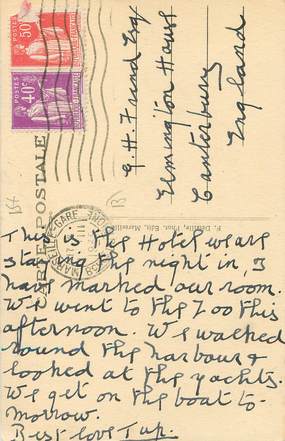 This is the Hotel we are
staying the night in, I
have marked our room.
We went to the Zoo this
afternoon. We walked
round the harbour &
looked at the yachts.
We get on the boat to-
morrow.
Best love
G.H. Frend Esq
Elmington House
Canterbury
England
CARTE POSTALE
POSTES
50c
POSTES
40c
MARSEILLE-GARE